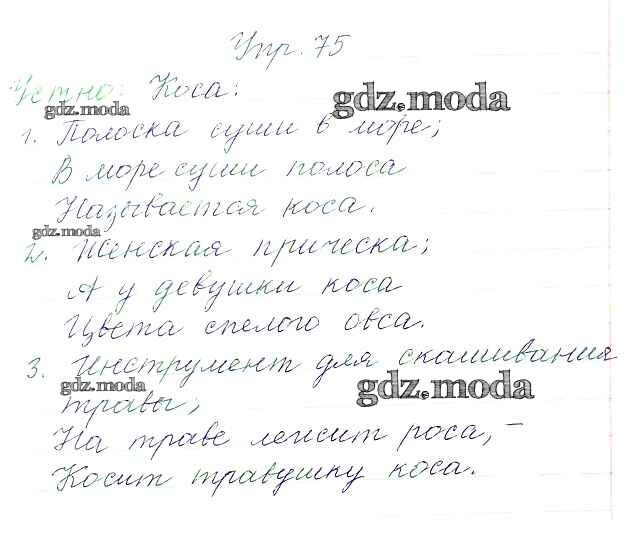 Упр. 75
Устно: Коса:
gdz.moda
gdz.moda
1. Полоска суши в море;
В море суши полоса
Называется коса.
gdz.moda
2. Женская прическа;
А у девушки коса
Цвета спелого овса.
3. Инструмент для скашивания
gdz.moda
gdz.moda
травы;
На траве лежит роса, –
Косит травушку коса.